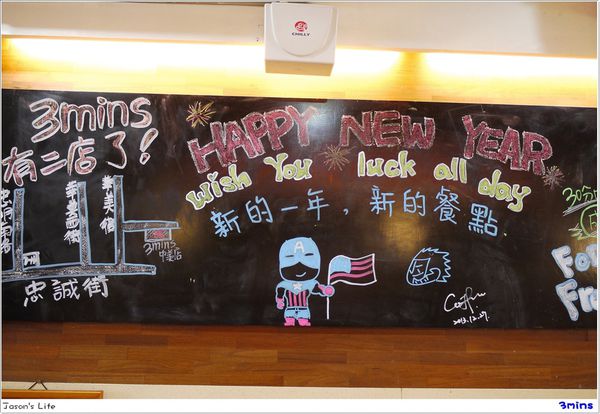 CHILLY
3mins
有二店了!
HAPPY NEW YEAR
Wish You luck all day
新的一年,新的餐點
美街
3mins
中美店
忠誠街
30分
For
Fre
2013.12.27.
Jason's Life
3mins